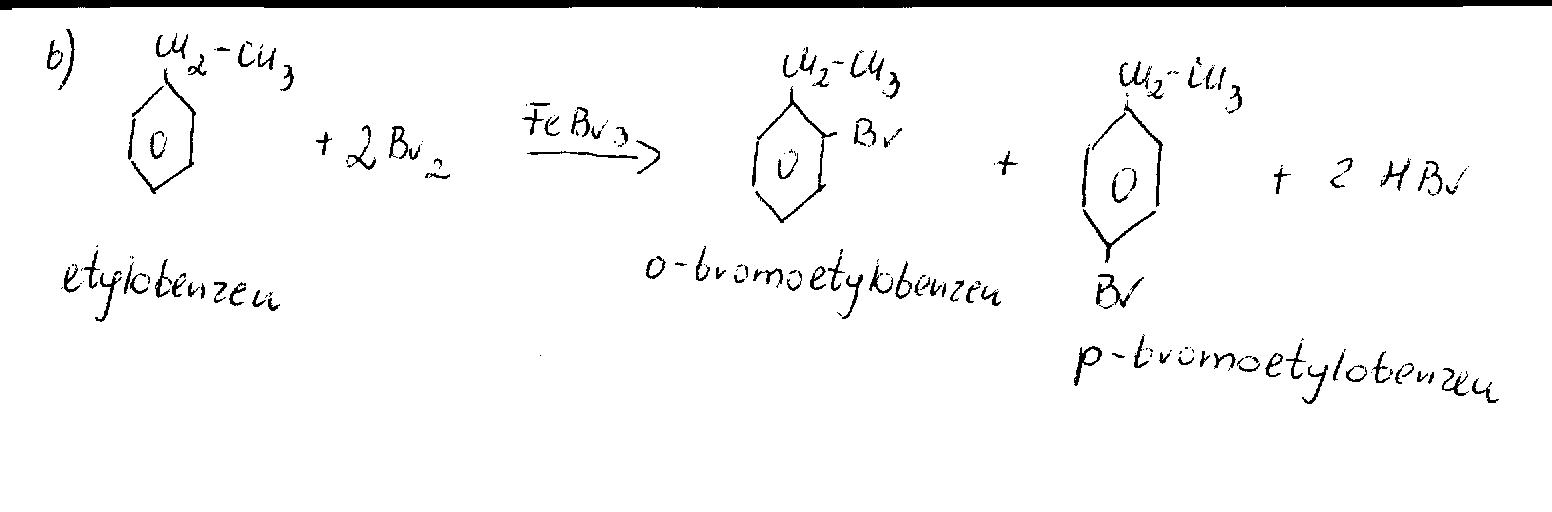 b) CH2-CH3 + 2Br2 FeBr3 → CH2-CH3 Br + CH2-CH3 Br + 2 HBr
etylobenzen o-bromoetylobenzen
p-bromoetylobenzen